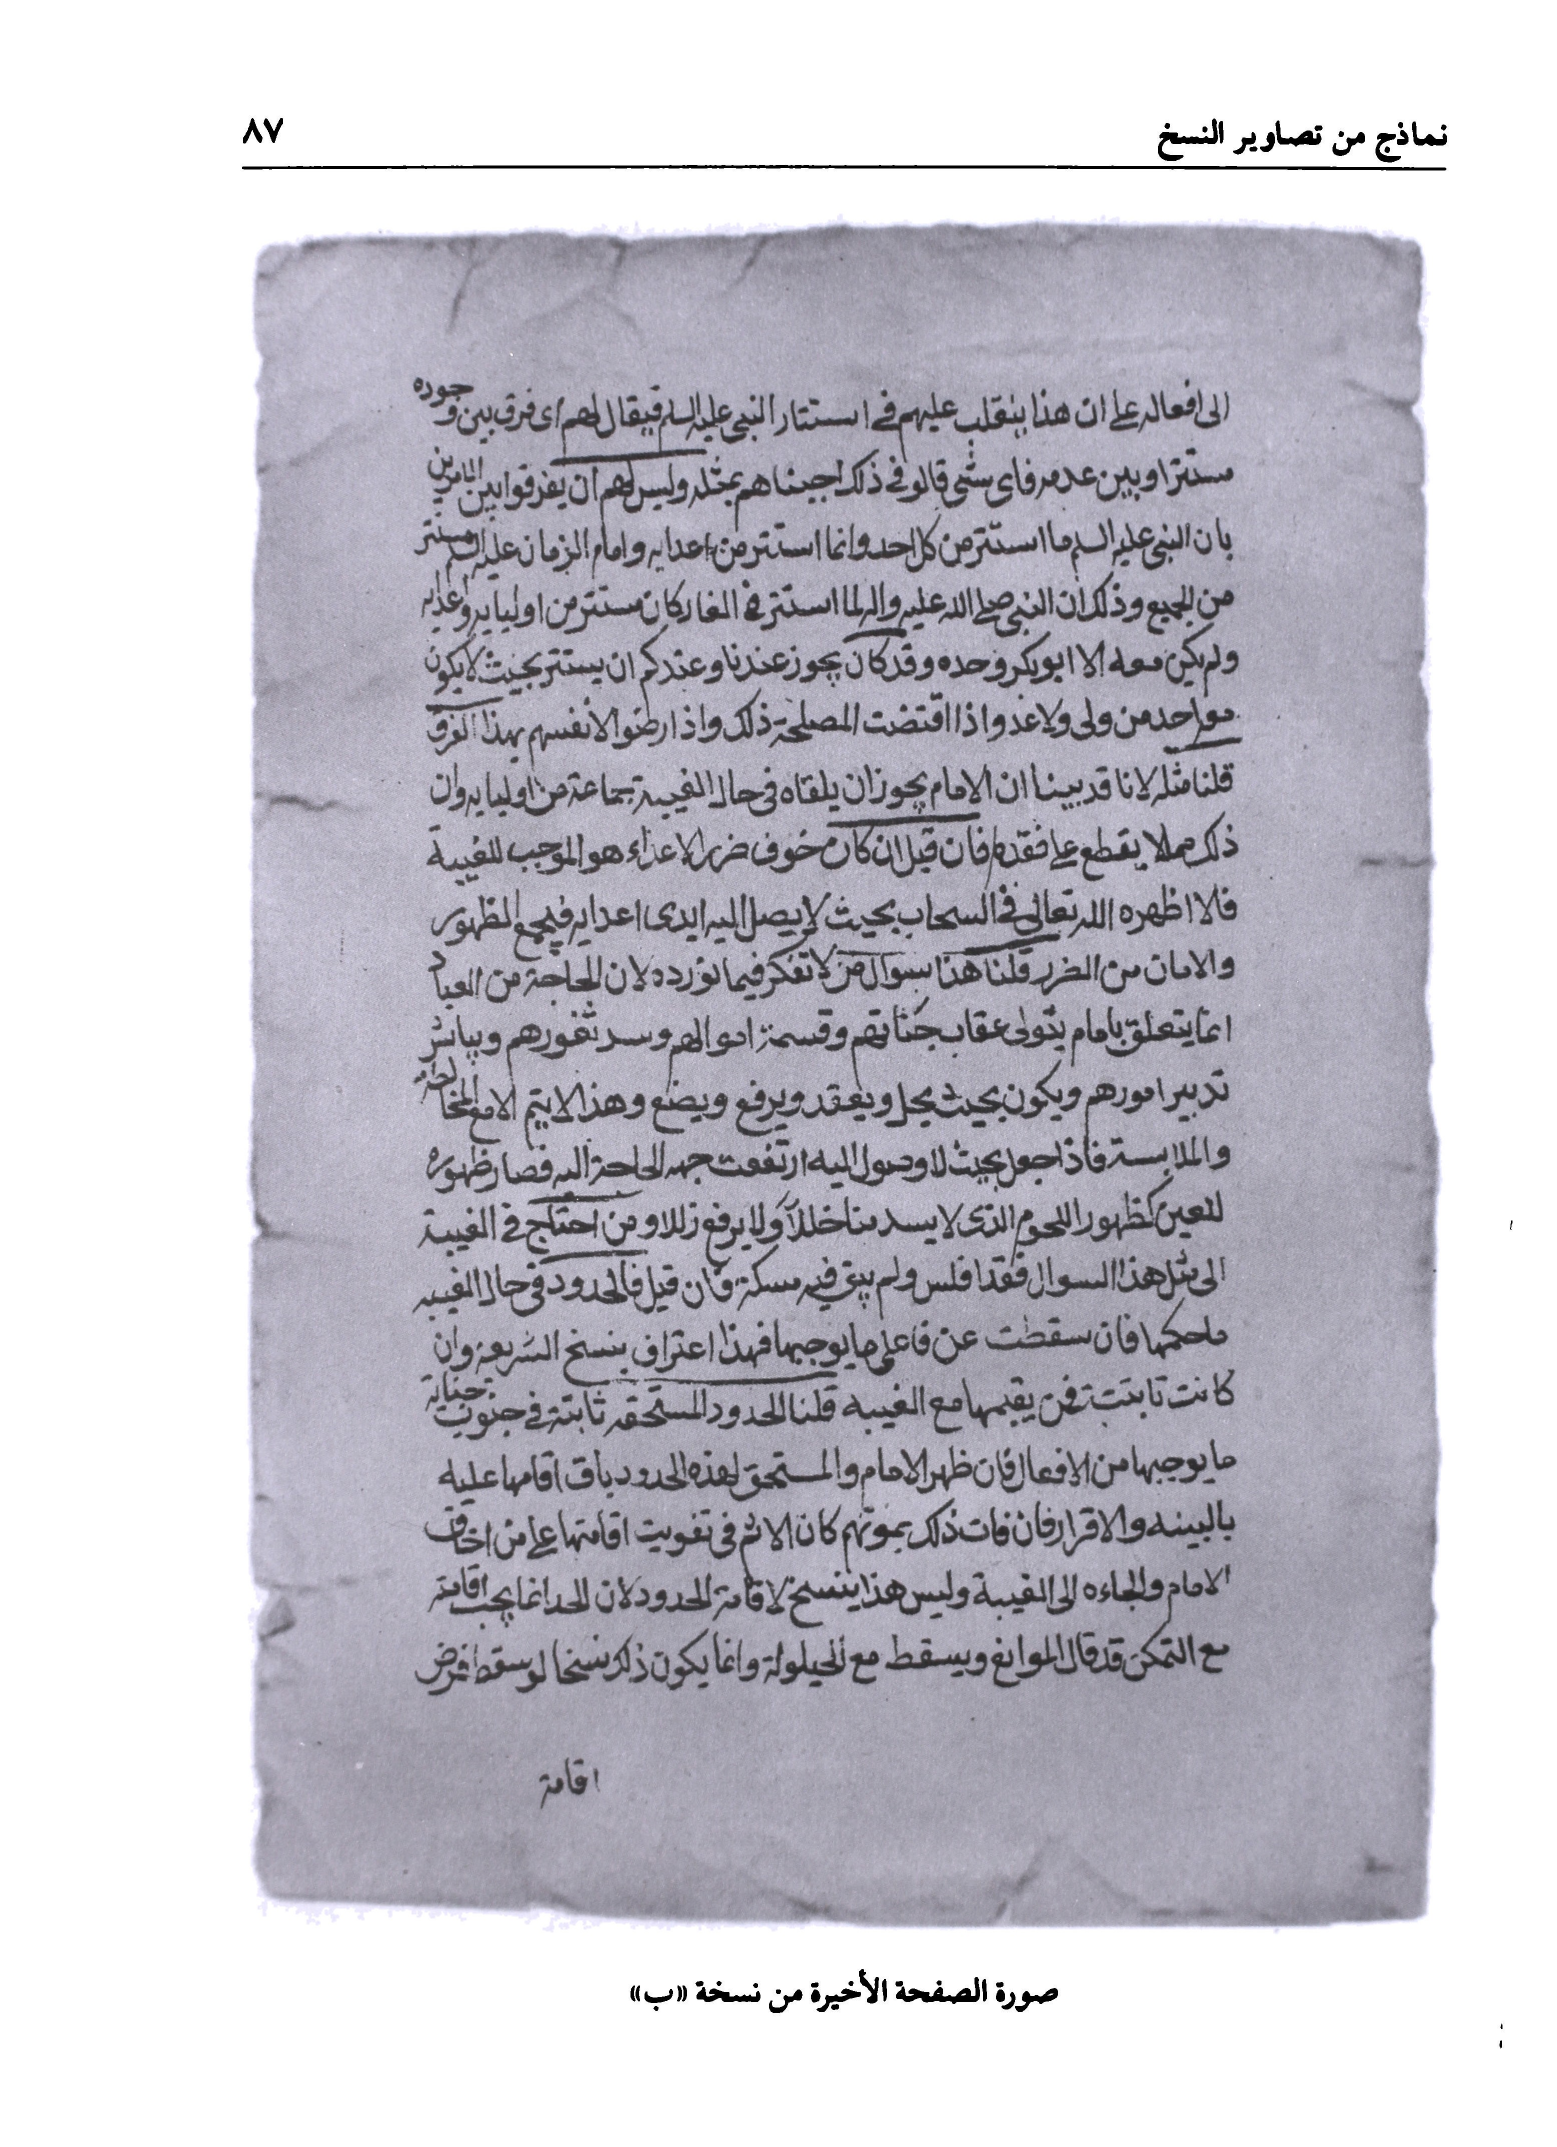 نماذج من تصاوير النسخ ٨٧
الى افعاله على ان هذا ينقلب عليهم في استتار النبي عليه السلم فيقال لهم اى فرق بين وجوده
مستترا وبين عدمه فاى شى قالو في ذلك اجبناهم بمثله وليس لهم ان يفرقوا بين الامرين
بان النبي عليه السلم ما استتر من كل احد وانما استتر من اعدايه وامام الزمان عليه السلم مستتر
من الجميع وذلك ان النبي صلى الله عليه واله لما استتر في الغار كان مستتر من اوليايه واعدايه
ولم يكن معه الا ابو بكر وحده وقد كان يجوز عندنا وعندكم ان يستتر بحيث لا يكون
معه احد من ولى ولا عدو اذا اقتضت المصلحة ذلك واذا رضوا لانفسهم بهذا الفرق
قلنا مثله لانا قد بينا ان الامام يجوز ان يلقاه في حال الغيبة جماعة من اوليايه وان
ذلك مما لا يقطع على فقده فان قيل ان كان خوف ضرر الاعداء هو الموجب للغيبة
فالا اظهره الله تعالى في السحاب بحيث لا يصل اليه ايدى اعدايه فيجمع الظهور
والامان من الضرر قلنا هذا سوال من لا تفكر فيما نورده لان الحاجة من العباد
انما يتعلق بامام يتولى عقاب جناتهم وقسمة اموالهم وسد ثغورهم ويباشر
تدبير امورهم ويكون بحيث يحل ويعقد ويرفع ويضع وهذا لا يتم الا مع المخالطة
والملابسة فاذا جعل بحيث لا وصول اليه ارتفعت جهه الحاجة اليه فصار ظهوره
للعين كظهور النجوم الذى لا يسد منا خللا ولا يرفع زللا ومن احتاج في الغيبة
الى مثل هذا السوال فقد افلس ولم يبق فيه مسكة فان قيل فالحدود في حال الغيبه
ما حكمها فان سقطت عن فاعلى ما يوجبها فهذا اعتراف بنسخ الشريعة وان
كانت ثابتة فمن يقيمها مع الغيبه قلنا الحدود المستحقه ثابتة في جنوب جناية
ما يوجبها من الافعال فان ظهر الامام والمستحق لهذه الحدود باق اقامها عليه
بالبينه والاقرار فان فات ذلك بموتهم كان الاثم في تفويت اقامتها على من اخاف
الامام والجاءه الى الغيبة وليس هذا ينسخ لاقامة الحدود لان الحد انما يجب اقامته
مع التمكن قد قال الموانع ويسقط مع الحيلولة وانما يكون ذلك نسخا لو سقط فرض
اقامة
صورة الصفحة الأخيرة من نسخة «ب»